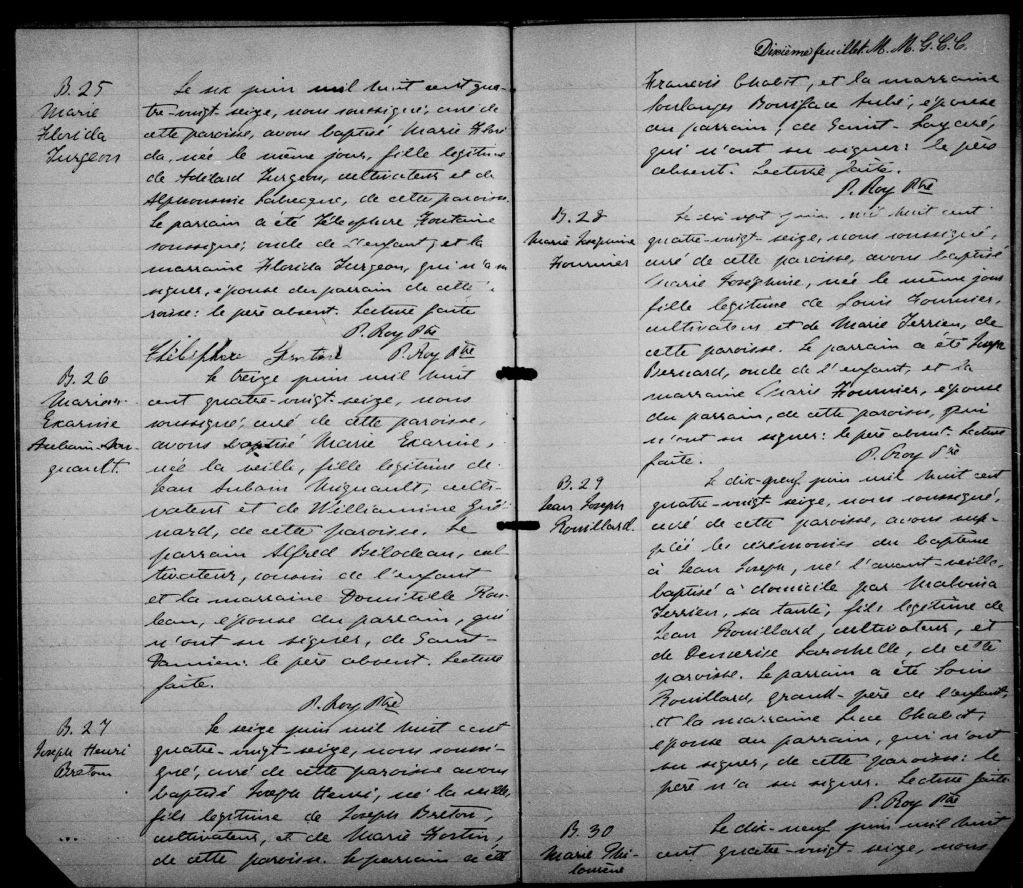 B. 25
Marie
Florida
Turgeon
Le six juin mil huit cent qua-
tre-vingt-seize, nous soussigné, curé de
cette paroisse, avons baptisé Marie Flori
da, née le même jour, fille legitime
de Adélard Turgeon, cultivateur et de
Alphonsine Labrecque, de cette paroisse.
Le parrain a été Télesphore Fontaine
soussigné, oncle de l'enfant, et la
marraine Florida Turgeon, qui n'a su
signer, épouse du parrain de cette
roisse: le père absent. Lecture faite
P. Roy Ptre
P. Roy Ptre
B. 26
Marie
Exarine
Aubain
Le treize juin mil huit
cent quatre-vingt-seize, nous
soussigné, curé de cette paroisse,
avons baptisé Marie Exarine,
née la veille, fille legitime de
Jean Aubain Mignault, culti-
vateur et de Williamine
nard, de cette paroisse. Le
parrain Alfred Bilodeau, cul
tivateur, cousin de l'enfant
et la marraine Domitille Rou-
leau, épouse du parrain, qui
n'ont su signer, de Saint-
Damien: le père absent. Lecture
faite.
P. Roy Ptre
B. 27
Joseph Henri
Breton
Le seize juin mil huit cent
quatre-vingt-seize, nous soussi-
gné, curé de cette paroisse avons
baptisé Joseph Henri, né la veille,
fils legitime de Joseph Breton,
cultivateur, et de Marie Fortin,
de cette paroisse. Le parrain a été
...
Dixième feuillet. M. M. G. C. C.
François Chabot, et la marraine
Soulanges Boniface Aubé, épouse
du parrain, de Saint-Lazare,
qui n'ont su signer: le père
absent. Lecture faite.
P. Roy Ptre
B. 28
Marie Joséphine
Fournier
Le dix sept juin mil huit cent
quatre-vingt-seize, nous soussigné,
curé de cette paroisse, avons baptisé
Marie Joséphine, née le même jour
fille legitime de Louis Fournier,
cultivateur et de Marie Terrien, de
cette paroisse. Le parrain a été Joseph
Bernard, oncle de l'enfant, et la
marraine Marie Fournier, épouse
du parrain, de cette paroisse, qui
n'ont su signer: le père absent. Lecture
faite.
P. Roy Ptre
B. 29
Jean Joseph
Rouillard.
Le dix-neuf juin mil huit cent
quatre-vingt seize, nous soussigné,
curé de cette paroisse, avons sup-
pléé les cérémonies du baptême
à Jean Joseph, né l'avant-veille,
baptisé à domicile par Malvina
Terrien, sa tante, fils legitime de
Jean Rouillard, cultivateur, et
de Demerise Larochelle, de cette
paroisse. Le parrain a été Louis
Rouillard, grand-père de l'enfant,
et la marraine Luce Chabot,
épouse du parrain, qui n'ont
su signer, de cette paroisse: le
père n'a su signer. Lecture faite
P. Roy Ptre
B. 30
Marie Phi-
lomène
Le dix-neuf juin mil huit
cent quatre-vingt-seize, nous